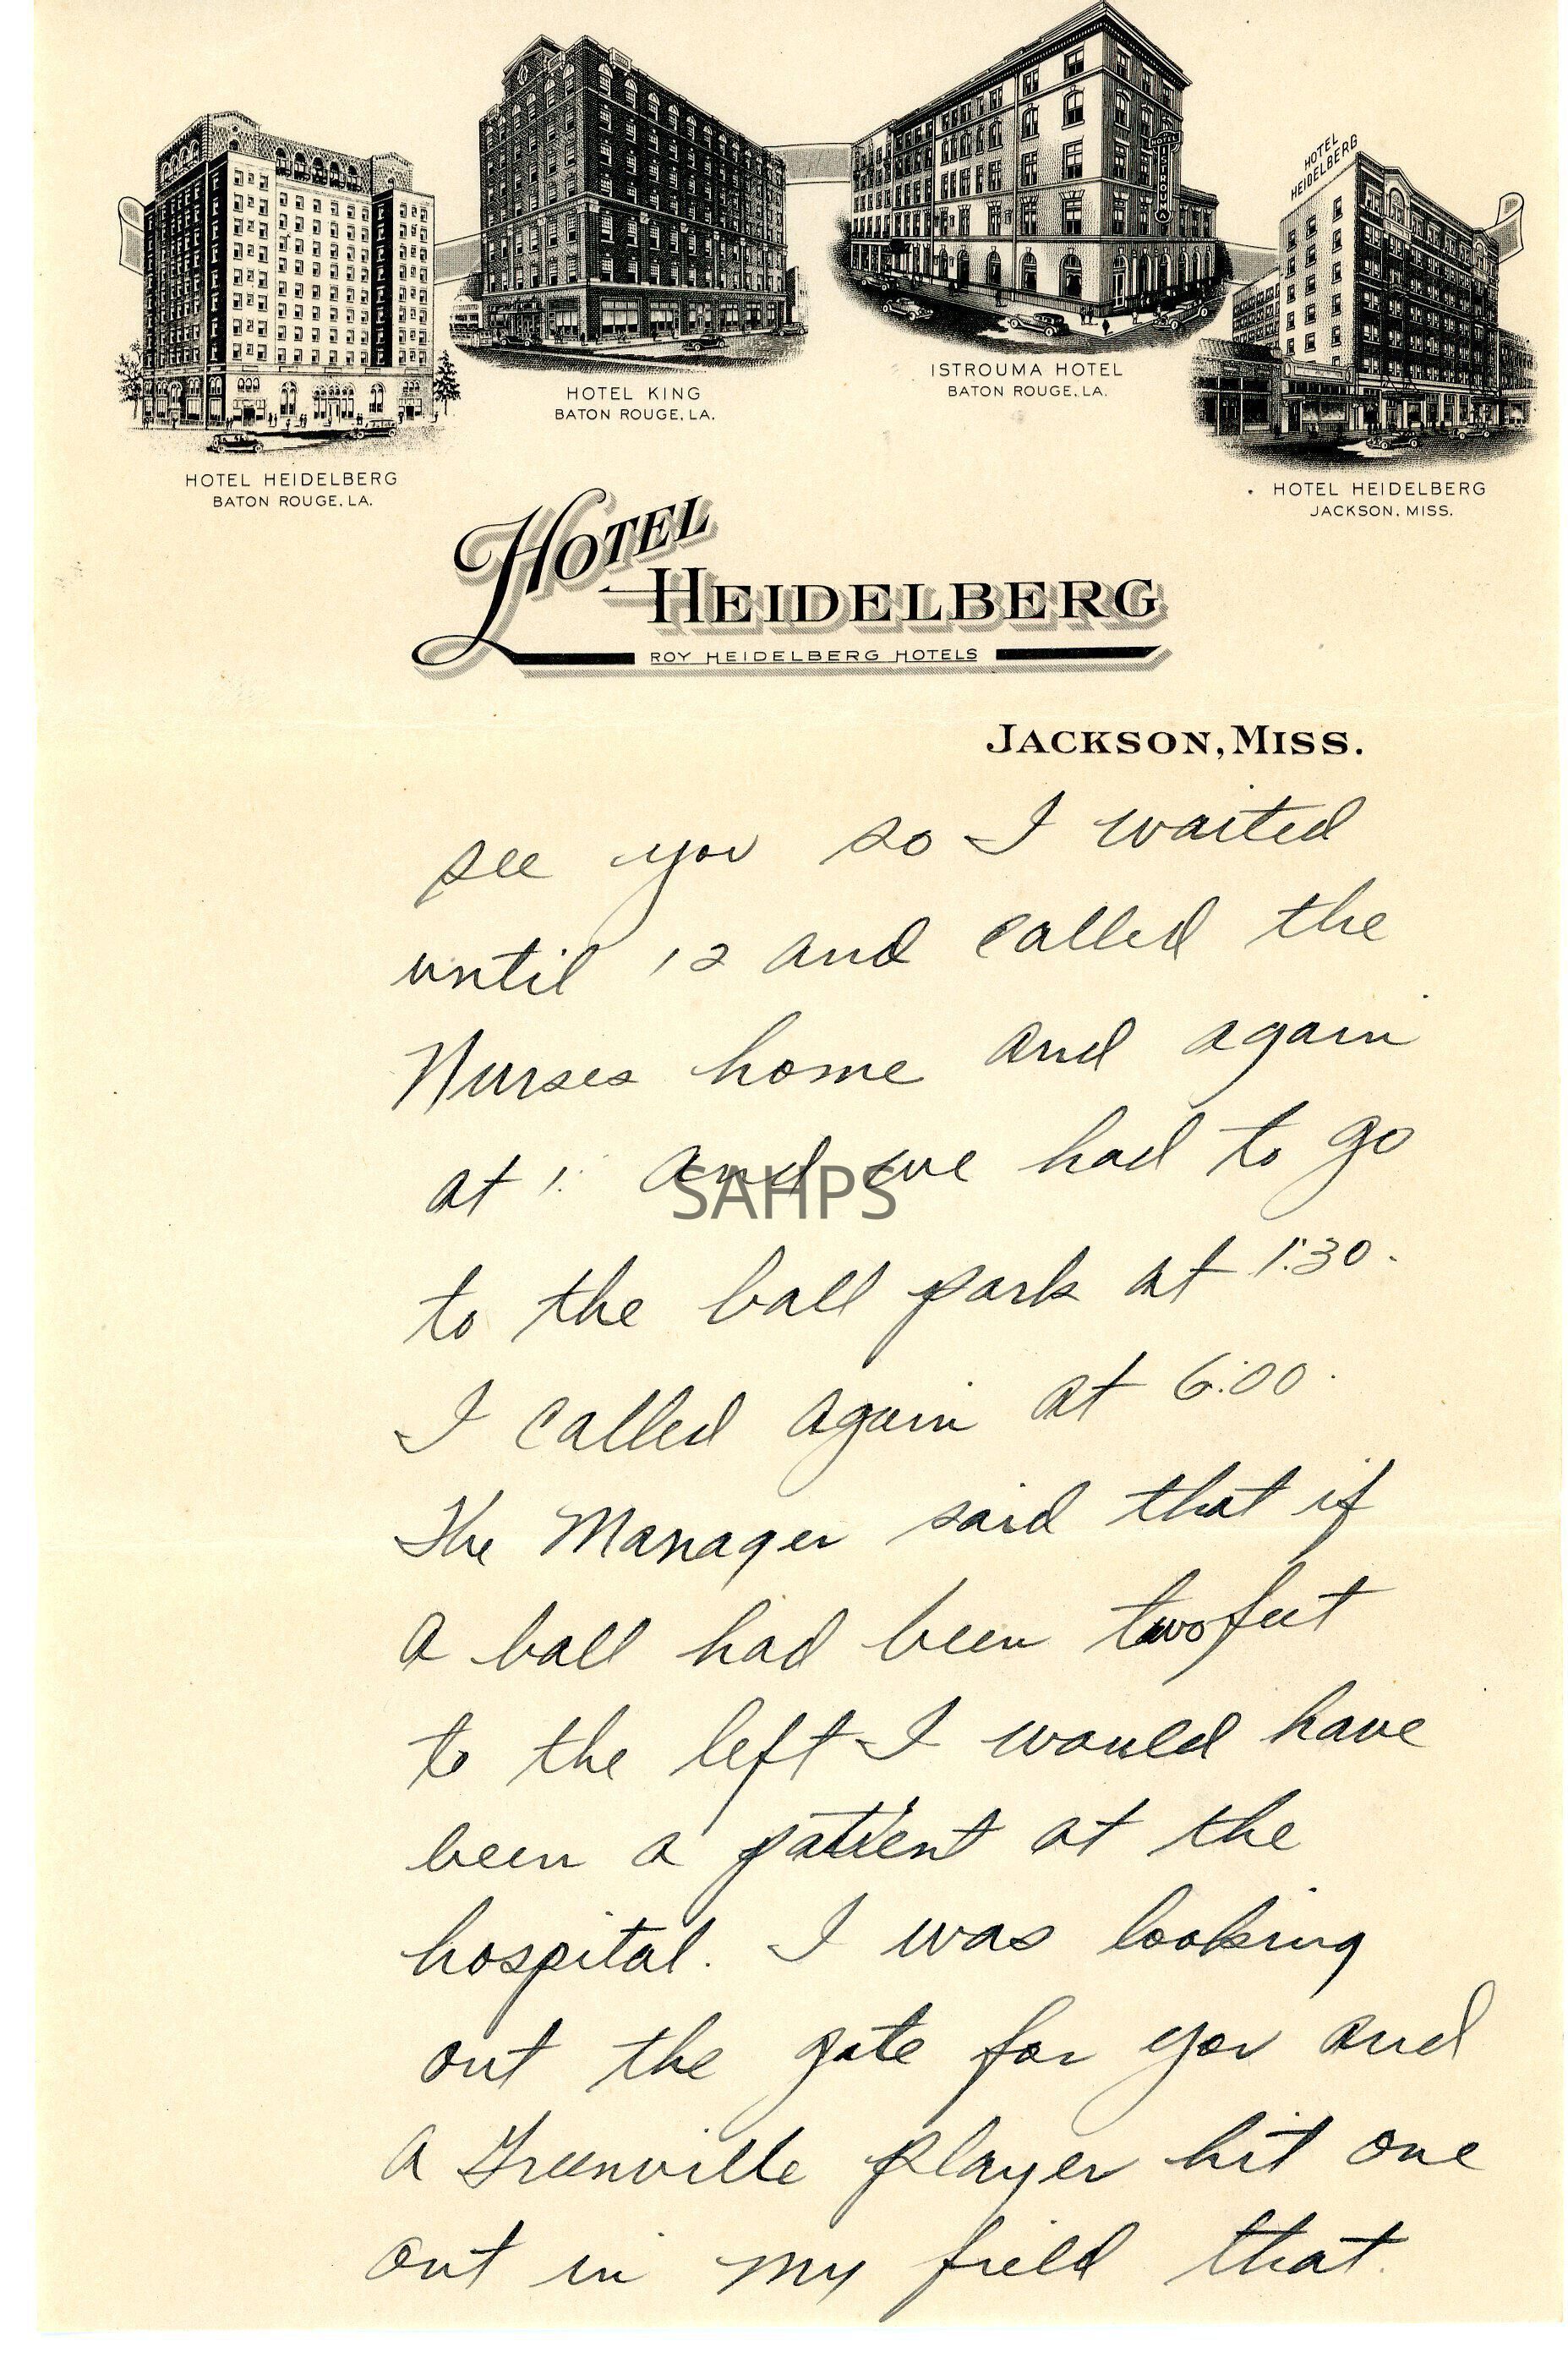 HOTEL HEIDELBERG
HOTEL KING
BATON ROUGE, LA.
ISTROUMA HOTEL
BATON ROUGE, LA.
ISTROUMA
HOTEL HEIDELBERG
BATON ROUGE, LA.
HOTEL HEIDELBERG
JACKSON, MISS.
HOTEL
HEIDELBERG
ROY HEIDELBERG HOTELS
JACKSON, MISS.
see you so I waited
until 12 and called the
Nurses home and again
at 1: and we had to go
SAHPS
to the ball park at 1:30.
I called again at 6:00.
The Manager said that if
a ball had been two feet
to the left I would have
been a patient at the
hospital. I was looking
out the gate for you and
a Greenville player hit one
out in my field that